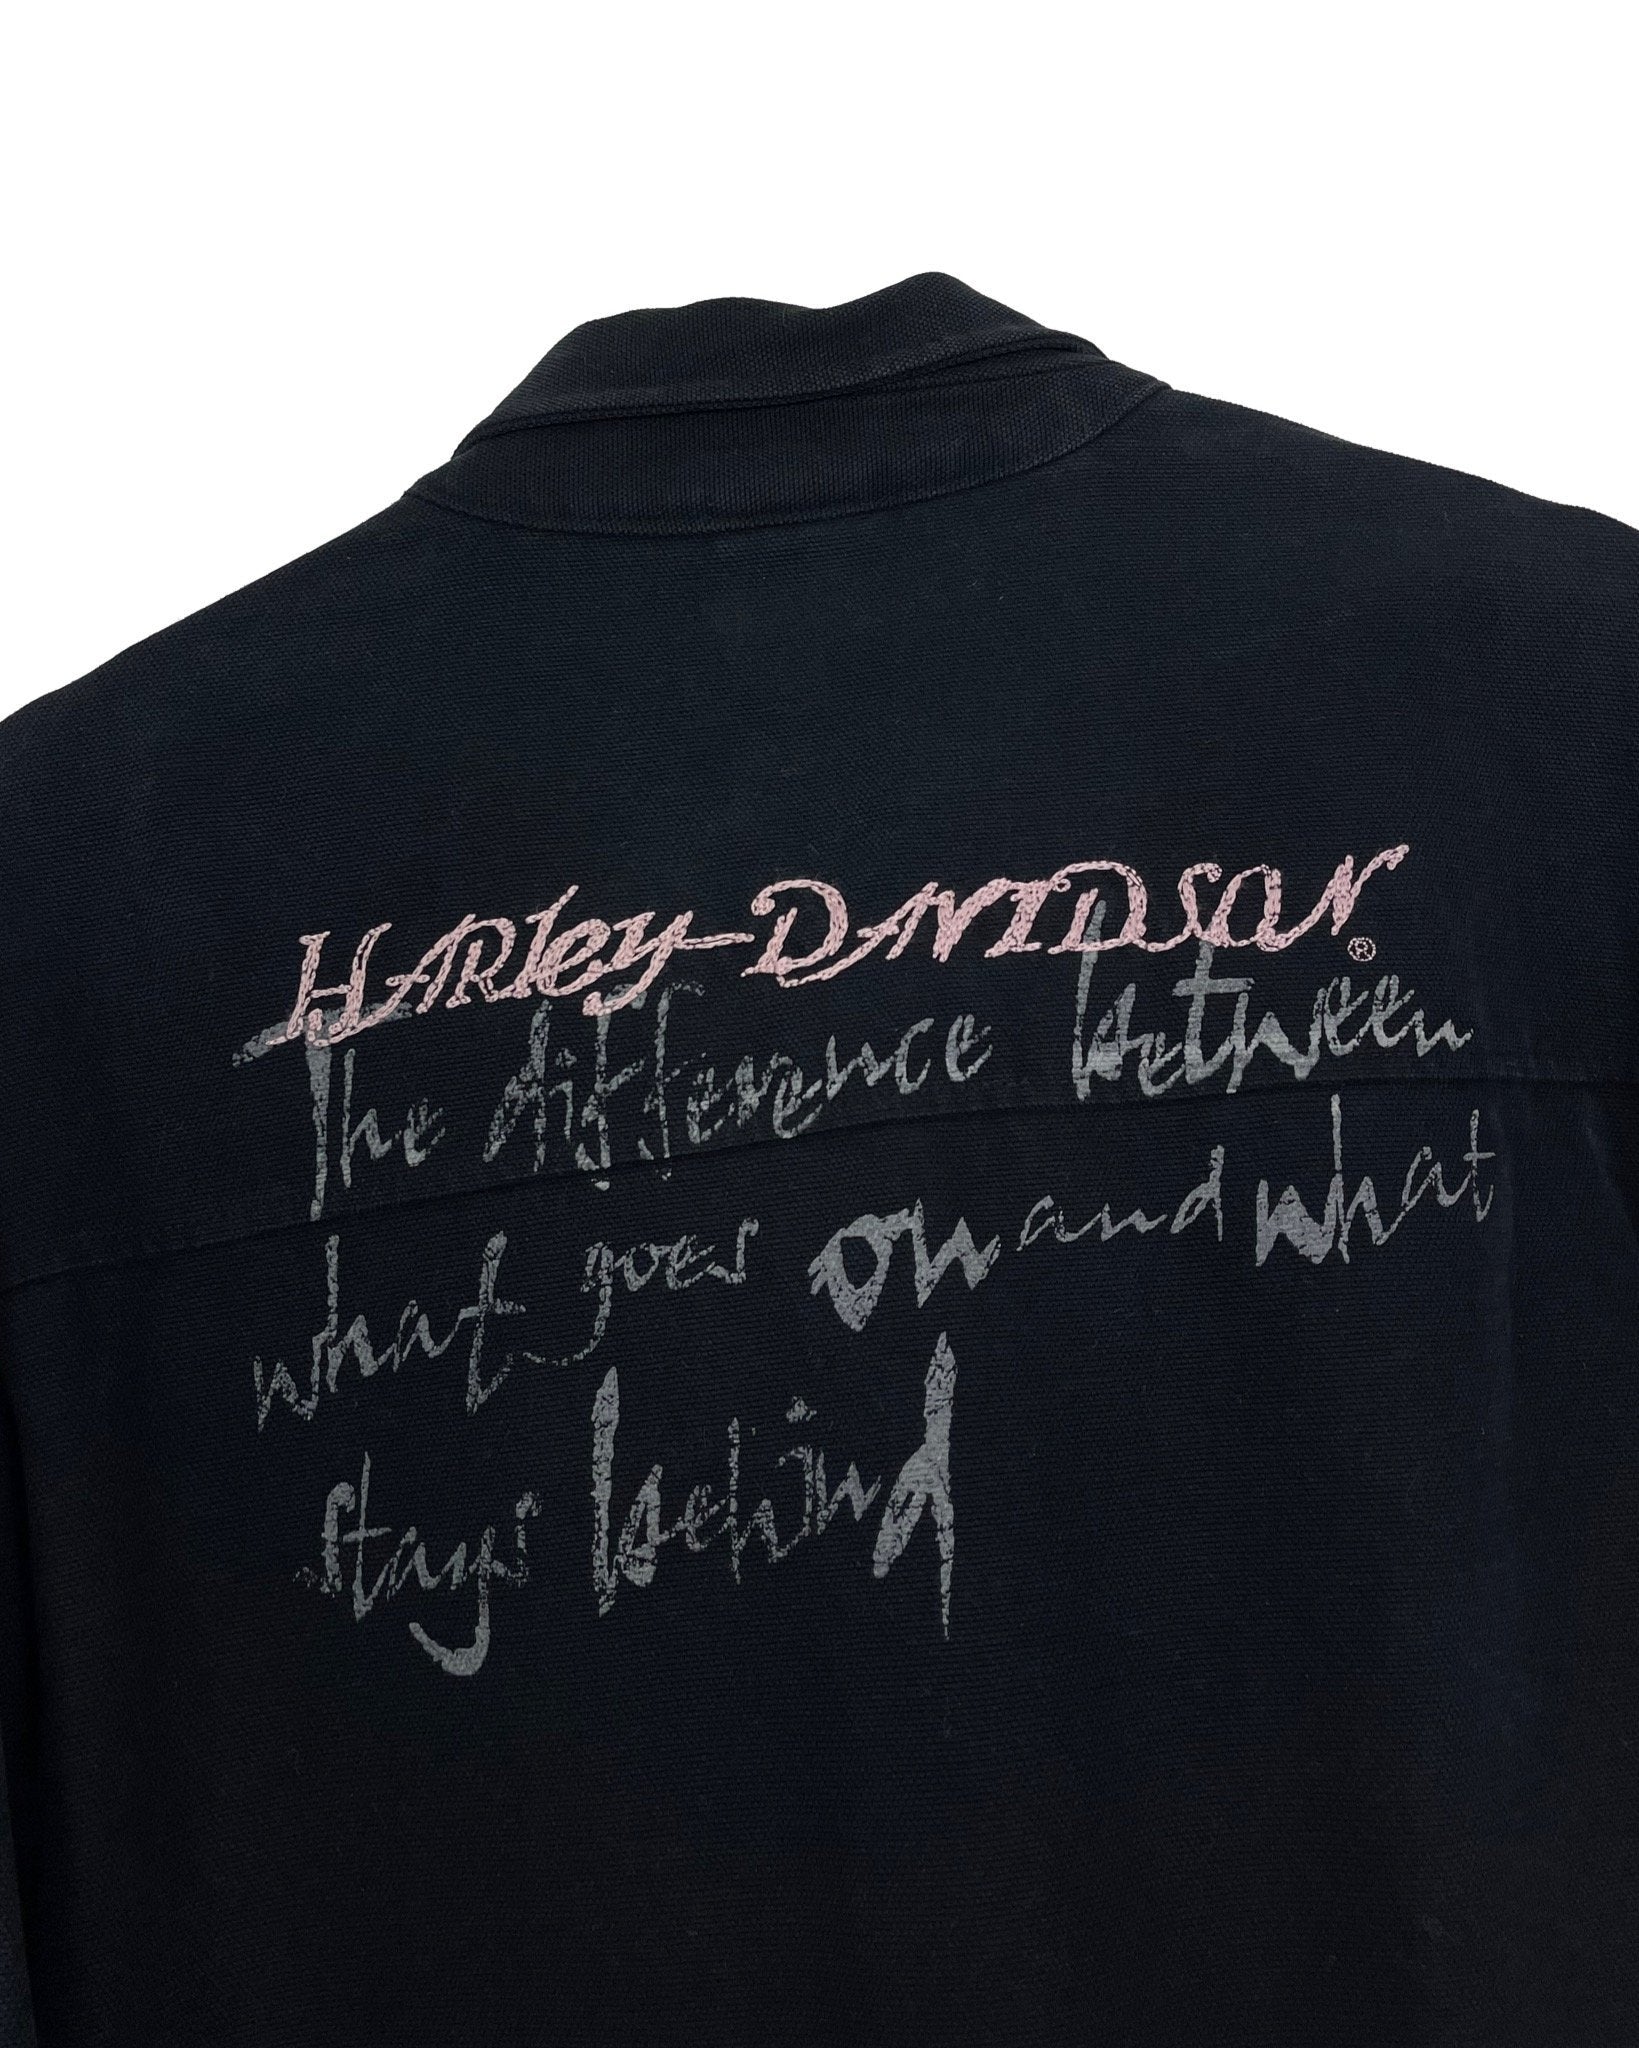 HARley-DAVIDSON ®
The difference between
what goes on and what
stays behind